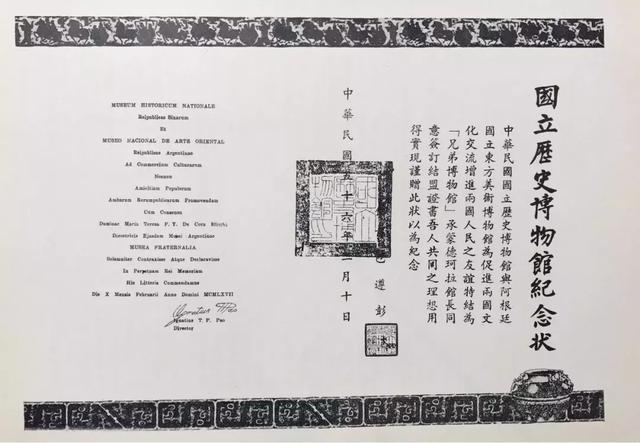 國立歷史博物館紀念狀
中華民國國立歷史博物館與阿根廷
國立東方美術博物館為促進兩國文
化交流增進兩國人民之友誼特結為
「兄弟博物館」承蒙德珂拉館長同
意簽訂結盟證書吾人共同之理想用
得實現謹贈此狀以為紀念
遵彭
中華民國五十六年二月十日
MUSEUM HISTORICUM NATIONALE
Reipublicae Sinarum
Et
MUSEO NACIONAL DE ARTE ORIENTAL
Reipublicae Argentinae
Ad Commercium Culturarum
Necnon
Amicitiam Populorum
Ambarum Rerumpublicarum Promovendam
Cum Consensu
Dominae Maria Teresa F. Y. De Cora
Directricis Ejusdem Musei Argentinae
MUSEA FRATERNALIA
Solemniter Contraxisse Atque Declaravisse
In Perpetuam Rei Memoriam
His Litteris Commendamus
Die X Mensis Februarii Anno Domini MCMLXVII
Ignatius T. P. Pao
Ignatius T. P. Pao
Director